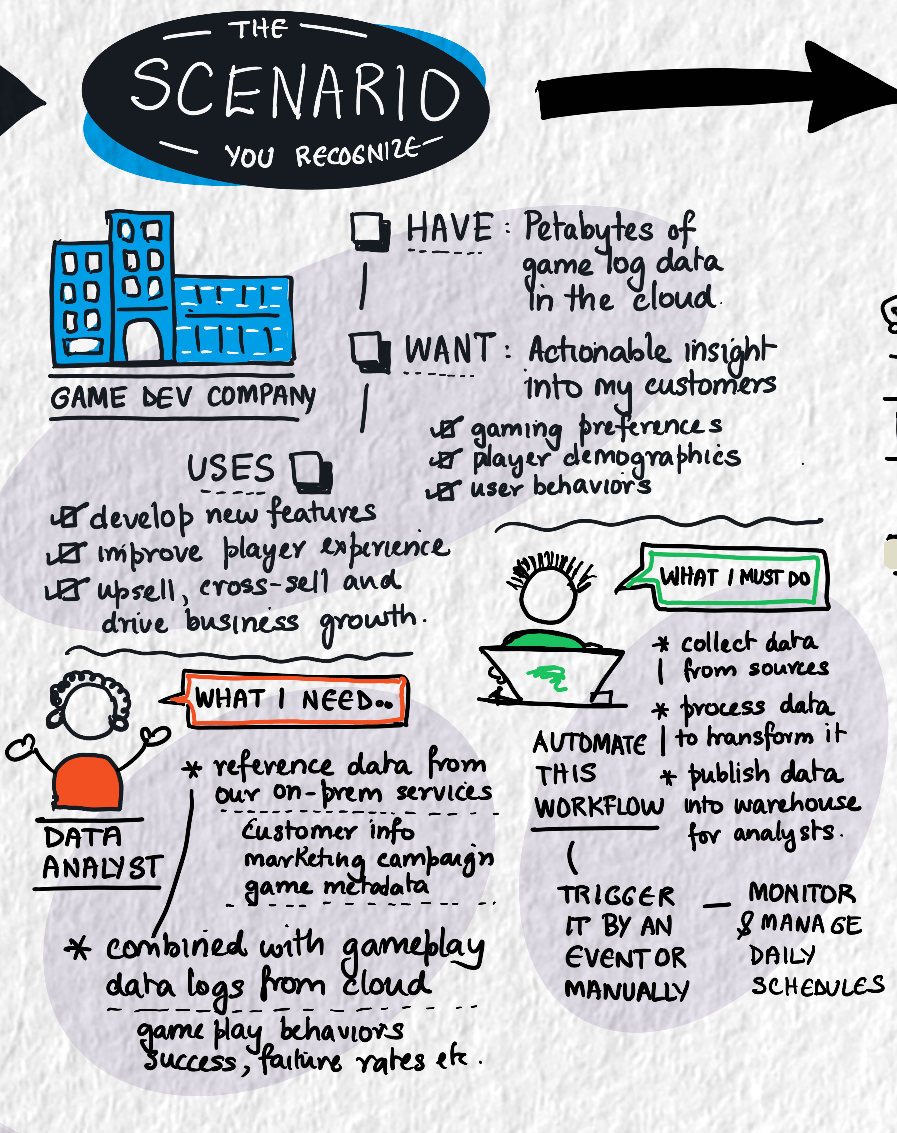 THE
SCENARIO
YOU RECOGNIZE
GAME DEV COMPANY
HAVE : Petabytes of
game log data
in the cloud.
WANT : Actionable insight
into my customers
gaming preferences
player demographics
user behaviors
USES
develop new features
improve player experience
upsell, cross-sell and
drive business growth.
DATA
ANALYST
WHAT I NEED..
* reference data from
our on-prem services
Customer info
marketing campaign
game metadata
* combined with gameplay
data logs from cloud
game play behaviors
success, failure rates etc.
WHAT I MUST DO
* collect data
from sources
* process data
to transform it
* publish data
into warehouse
for analysts.
AUTOMATE
THIS
WORKFLOW
TRIGGER
IT BY AN
EVENT OR
MANUALLY
MONITOR
& MANAGE
DAILY
SCHEDULES